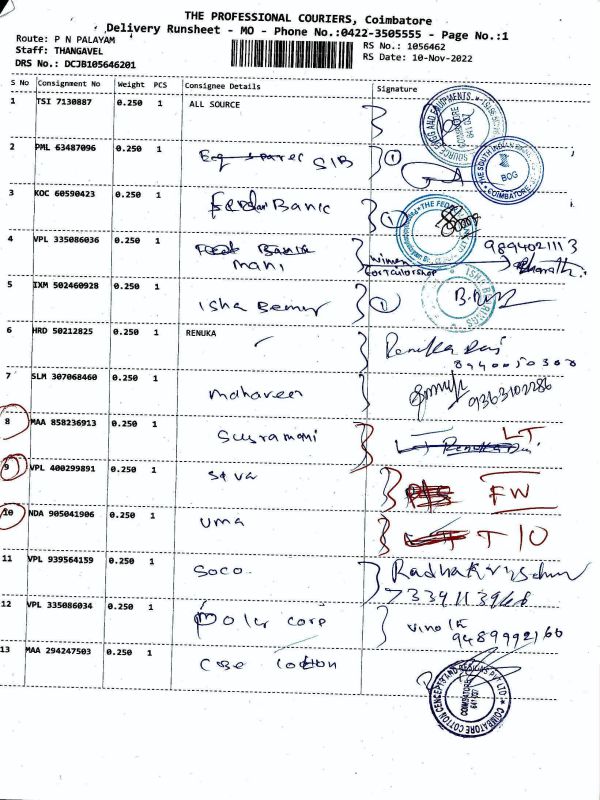 THE PROFESSIONAL COURIERS, Coimbatore
Delivery Runsheet - MO - Phone No.:0422-3505555 - Page No.:1
Route: P N PALAYAM
RS No.: 1056462
Staff: THANGAVEL
RS Date: 10-Nov-2022
DRS No.: DCJB105646201
S No Consignment No Weight PCS Consignee Details Signature
1 TSI 7130887 0.250 1 ALL SOURCE
2 PML 63487096 0.250 1 SIB 1
THE SOUTH INDIAN BOG COIMBATORE
3 KOC 60590423 0.250 1 Fedar Banic 1
THE FEDERAL
4 VPL 335086036 0.250 1 mani 9894021113
5 IXM 502460928 0.250 1 Isha 1
6 HRD 50212825 0.250 1 RENUKA Renuka Devi
8940050300
7 SLM 307068460 0.250 1 mahaveer 9363102286
8 MAA 858236913 0.250 1 Susramani LT
9 VPL 400299891 0.250 1 siva FW
10 NDA 905041906 0.250 1 uma T 10
11 VPL 939564159 0.250 1 soco Radhakryschnn
12 VPL 335086034 0.250 1 corp
9489992160
13 MAA 294247503 0.250 1
COIMBATORE 641 037